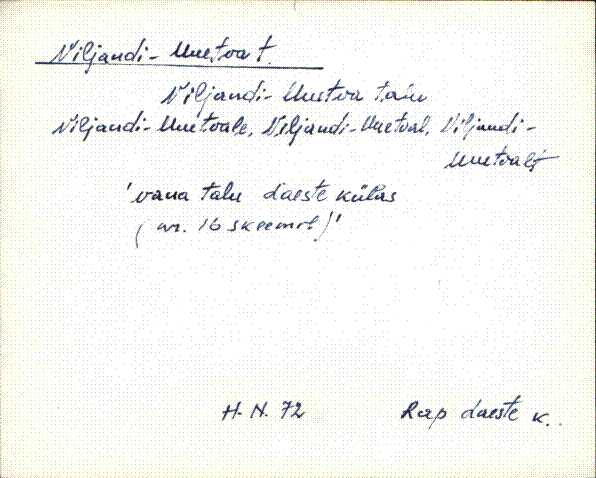 Viljandi-Uuetoa t.
Viljandi-Uustoa talu
Viljandi-Uuetoale, Viljandi-Uuetoal, Viljandi-
Uuetoalt
'vana talu Laeste külas
(nr. 16 skeemil)'
H. N. 72 Rap Laeste k.